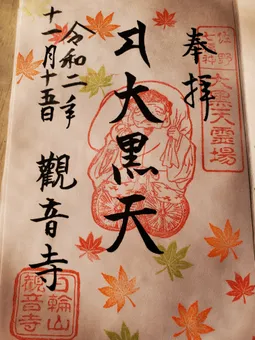 奉拝
佐野
七福神
大黒天霊場
大黒天
令和二年
十一月十五日
觀音寺
山
觀音寺